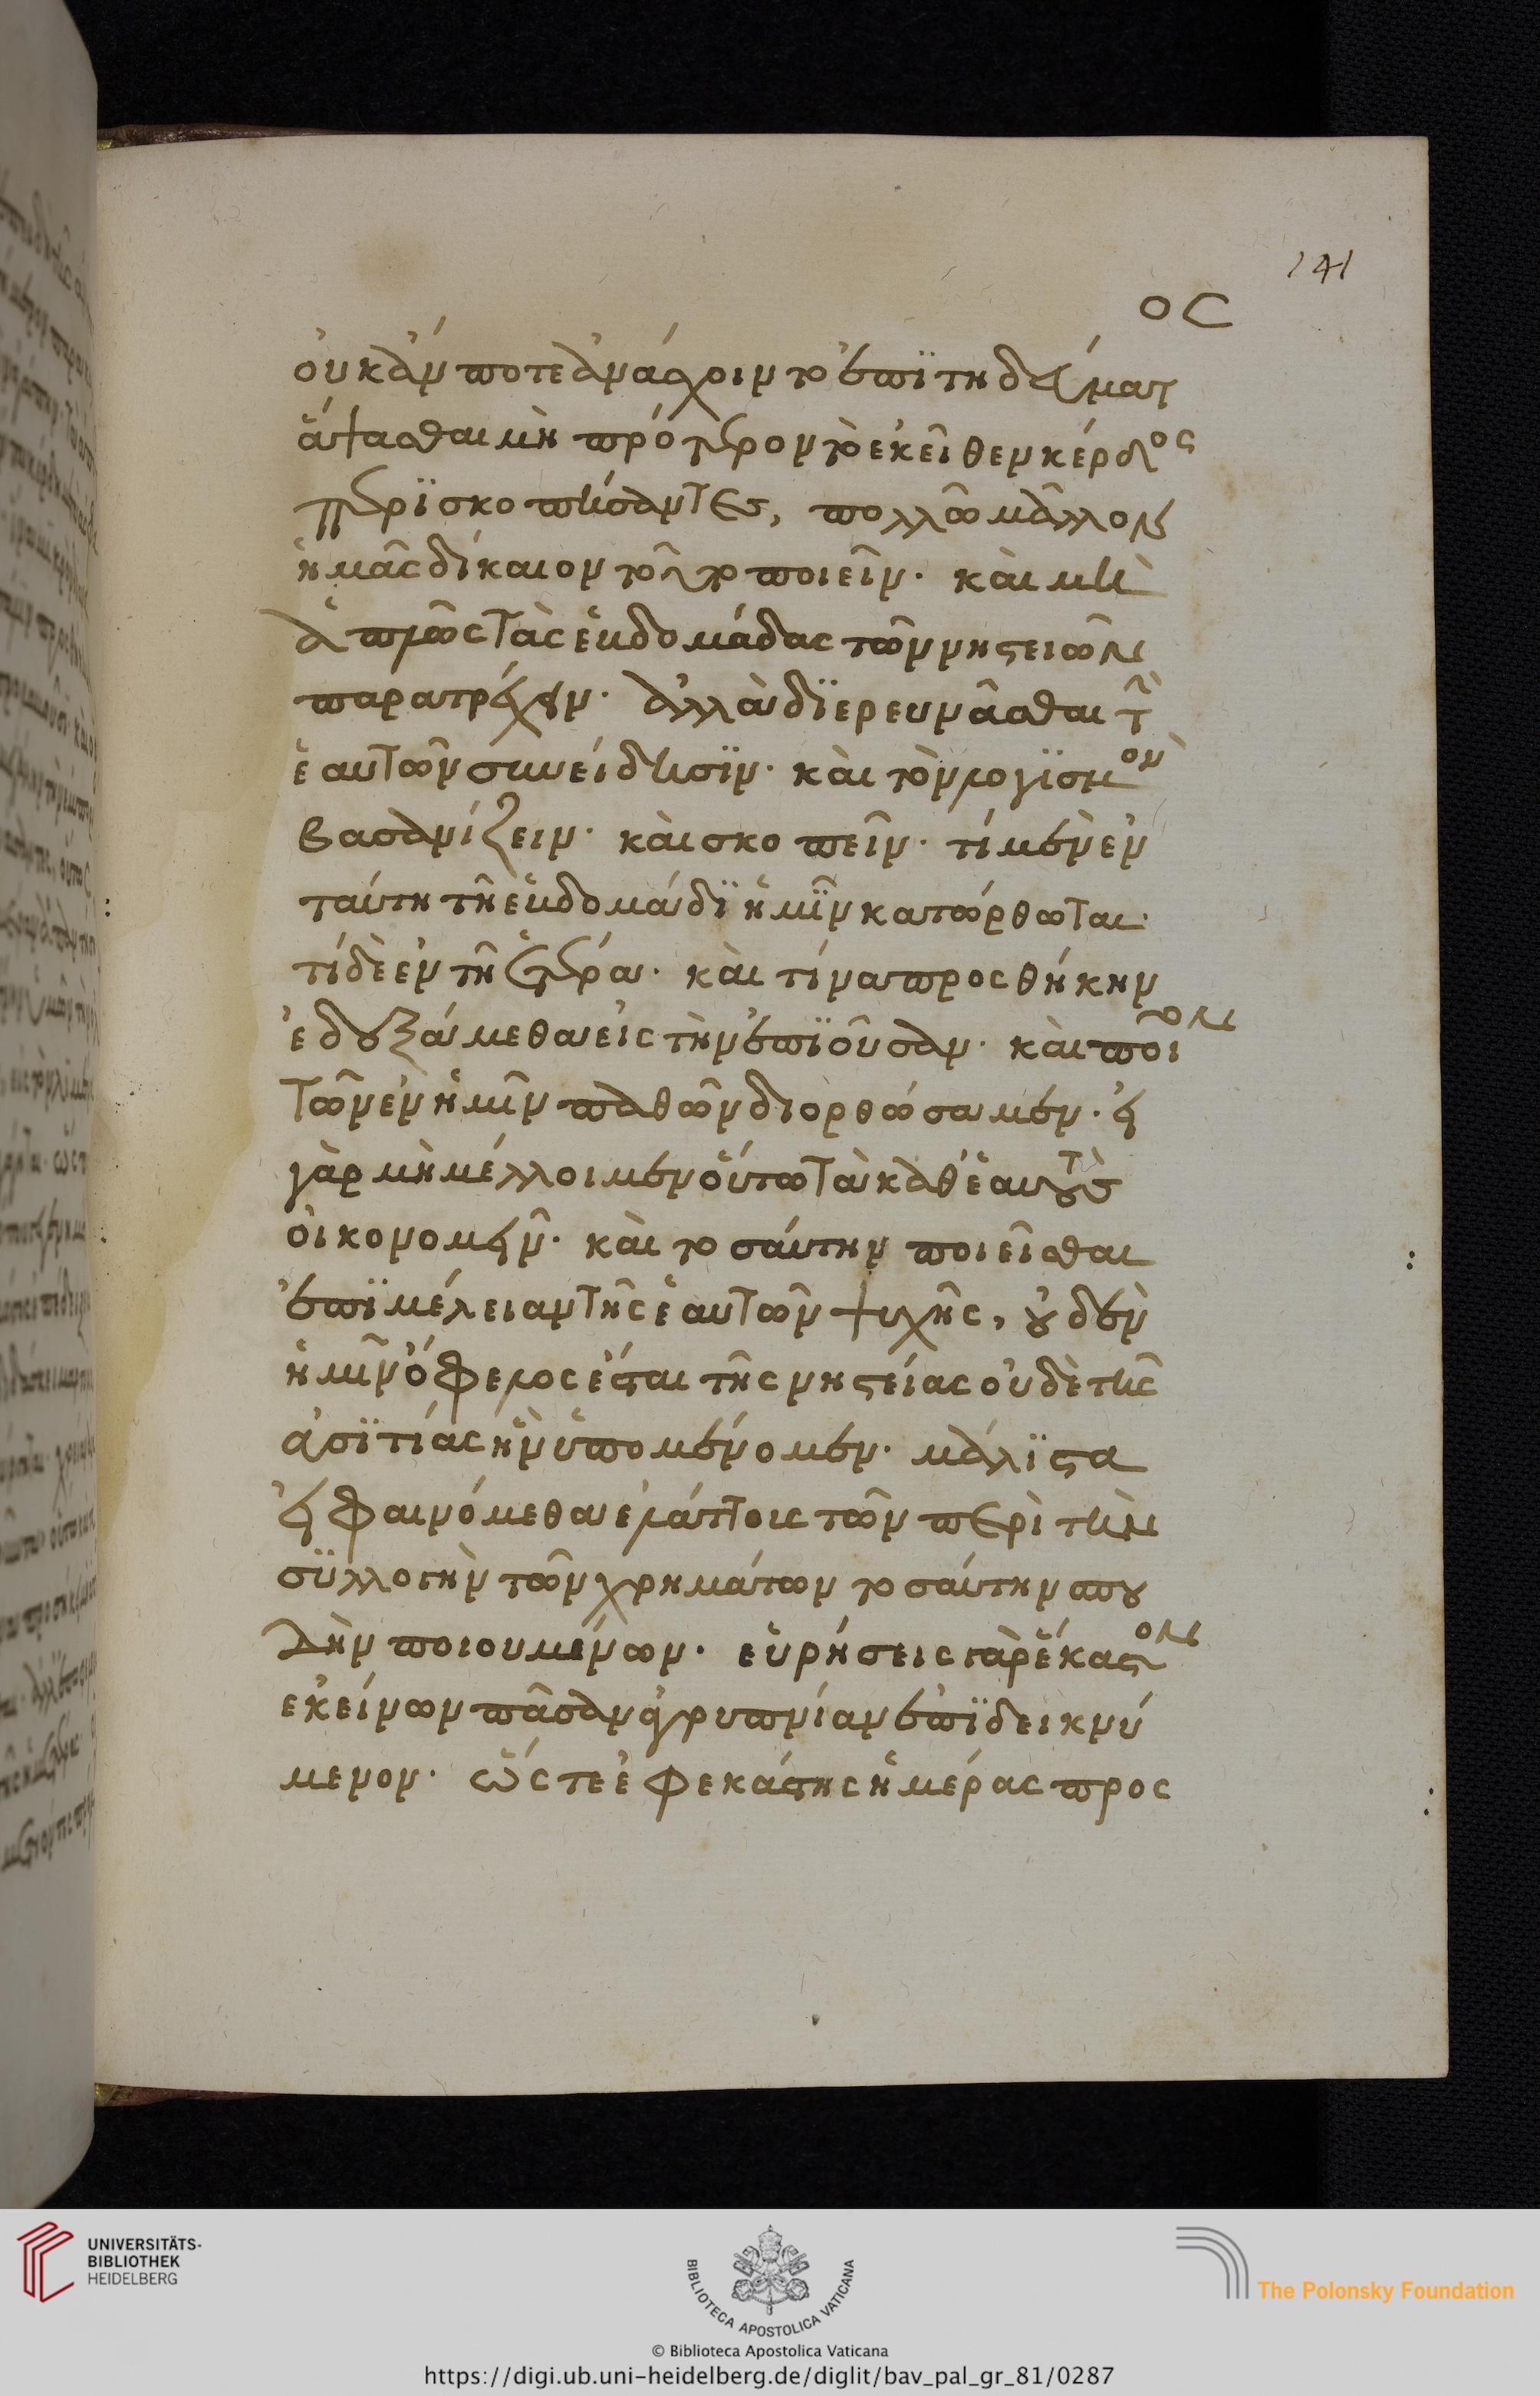 141
ος
οὐκ ἄν ποτε ἀνάσχοιντο ἐπϊτηδεύματ
ἅψασθαι μὴ πρότερον τὸ ἐκεῖθεν κέρδος
περϊσκοπήσαντες, πολλῶ μᾶλλον
ἡμᾶς δίκαιον τοῦτο ποιεῖν· καὶ μὴ
ἁπλῶς τὰς ἑβδομάδας τῶν νηστειῶν
παρατρέχειν· ἀλλὰ δϊερευνᾶσθαι τὴν
ἑαυτῶν συνείδησϊν· καὶ τὸν λογϊσμὸν
βασανίζειν· καὶ σκοπεῖν· τί μὲν ἐν
ταύτη τῆ ἑβδομάδϊ ἡμῖν κατώρθωται·
τί δὲ ἐν τῆ ἑτέρα· καὶ τίνα προσθήκην
ἐδεξάμεθα εἰς τὴν ἐπϊοῦσαν· καὶ ποῖον
τῶν ἐν ἡμῖν παθῶν διορθώσαμεν· εἰ
γὰρ μὴ μέλλοιμεν οὕτω τὰ καθ' ἑαυτοὺς
οἰκονομεῖν· καὶ τοσαύτην ποιεῖσθαι
ἐπϊμέλειαν τῆς ἑαυτῶν ψυχῆς, οὐδὲν
ἡμῖν ὄφελος ἔσται τῆς νηστείας οὐδὲ τῆς
ἀσϊτίας ἣν ὑπομένομεν· μάλϊστα
εἰ φαινόμεθα ἐλάττους τῶν περὶ τὴν
σϋλλογὴν τῶν χρημάτων τοσαύτην σπου
δὴν ποιουμένων· εὑρήσεις γὰρ ἕκαστον
ἐκείνων πᾶσαν ἀγρυπνίαν ἐπϊδεικνύ
μενον· ὥς τε ἐφ ἑκάστης ἡμέρας προς
UNIVERSITÄTS-
BIBLIOTHEK
HEIDELBERG
BIBLIOTECA APOSTOLICA VATICANA
The Polonsky Foundation
© Biblioteca Apostolica Vaticana
https://digi.ub.uni-heidelberg.de/diglit/bav_pal_gr_81/0287